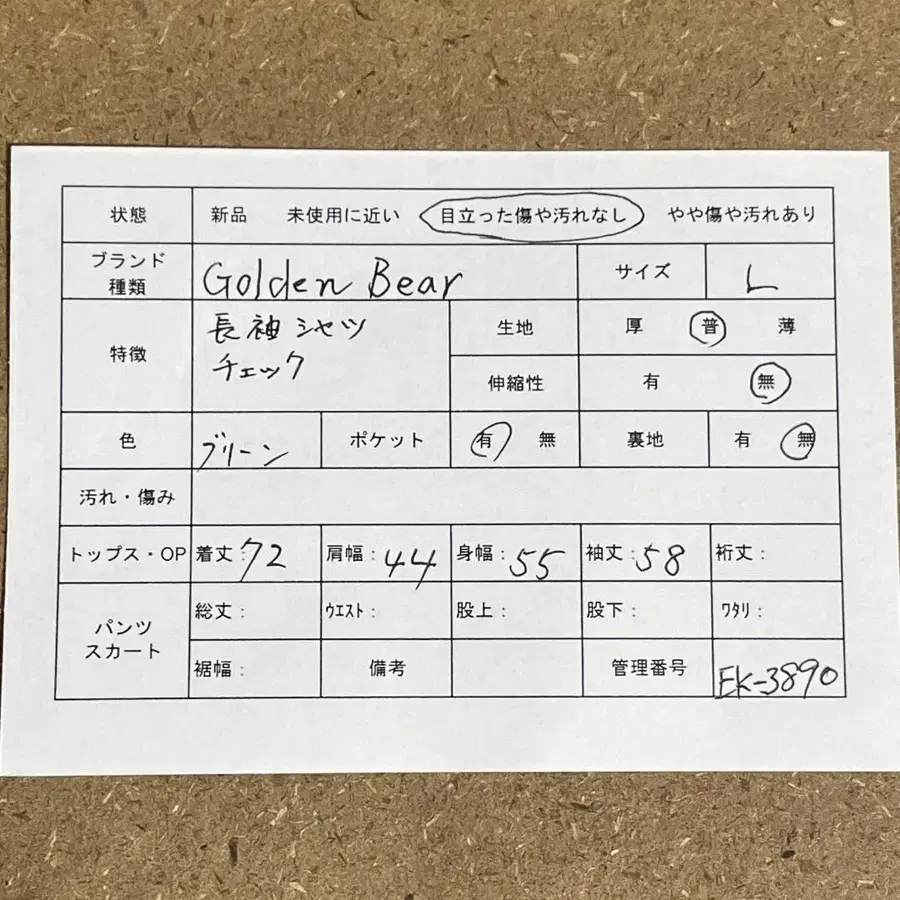 状態 新品 未使用に近い 目立った傷や汚れなし やや傷や汚れあり
ブランド
種類
Golden Bear
サイズ L
特徴
長袖シャツ
チェック
生地 厚 普 薄
伸縮性 有 無
色 グリーン ポケット 有 無 裏地 有 無
汚れ・傷み
トップス・OP 着丈:72 肩幅:44 身幅:55 袖丈:58 裄丈:
パンツ
スカート
総丈: ウエスト: 股上: 股下: ワタリ:
裾幅: 備考 管理番号 EK-3890